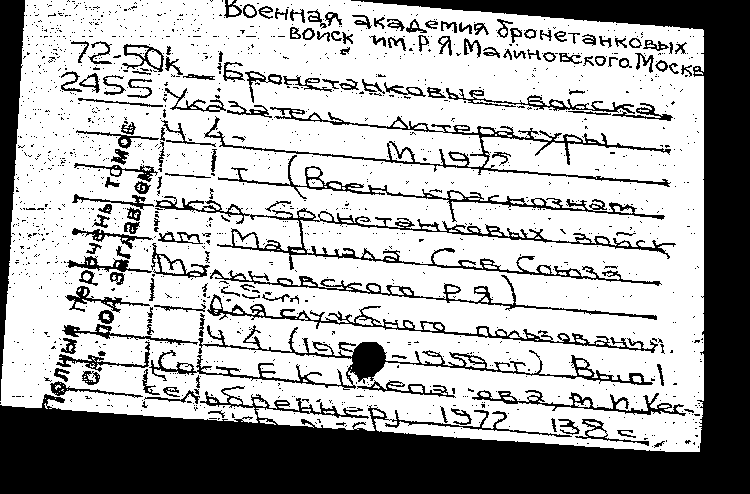 Военная академия бронетанковых
войск им. Р.Я. Малиновского. Москва
72-50к
2455
Бронетанковые войска.
Указатель литературы.
Ч. 4-
М., 1972
т. (Воен. краснознам.
акад. бронетанковых войск
им. Маршала Сов. Союза
Малиновского Р.Я.)
25см.
Для служебного пользования.
Ч. 4. (195 -1959 гг.) Вып. 1.
Сост. Е.К. М.П. Кес-
сельбреннер). 1972 138 с.
Полный перечень томов
см. под заглавием